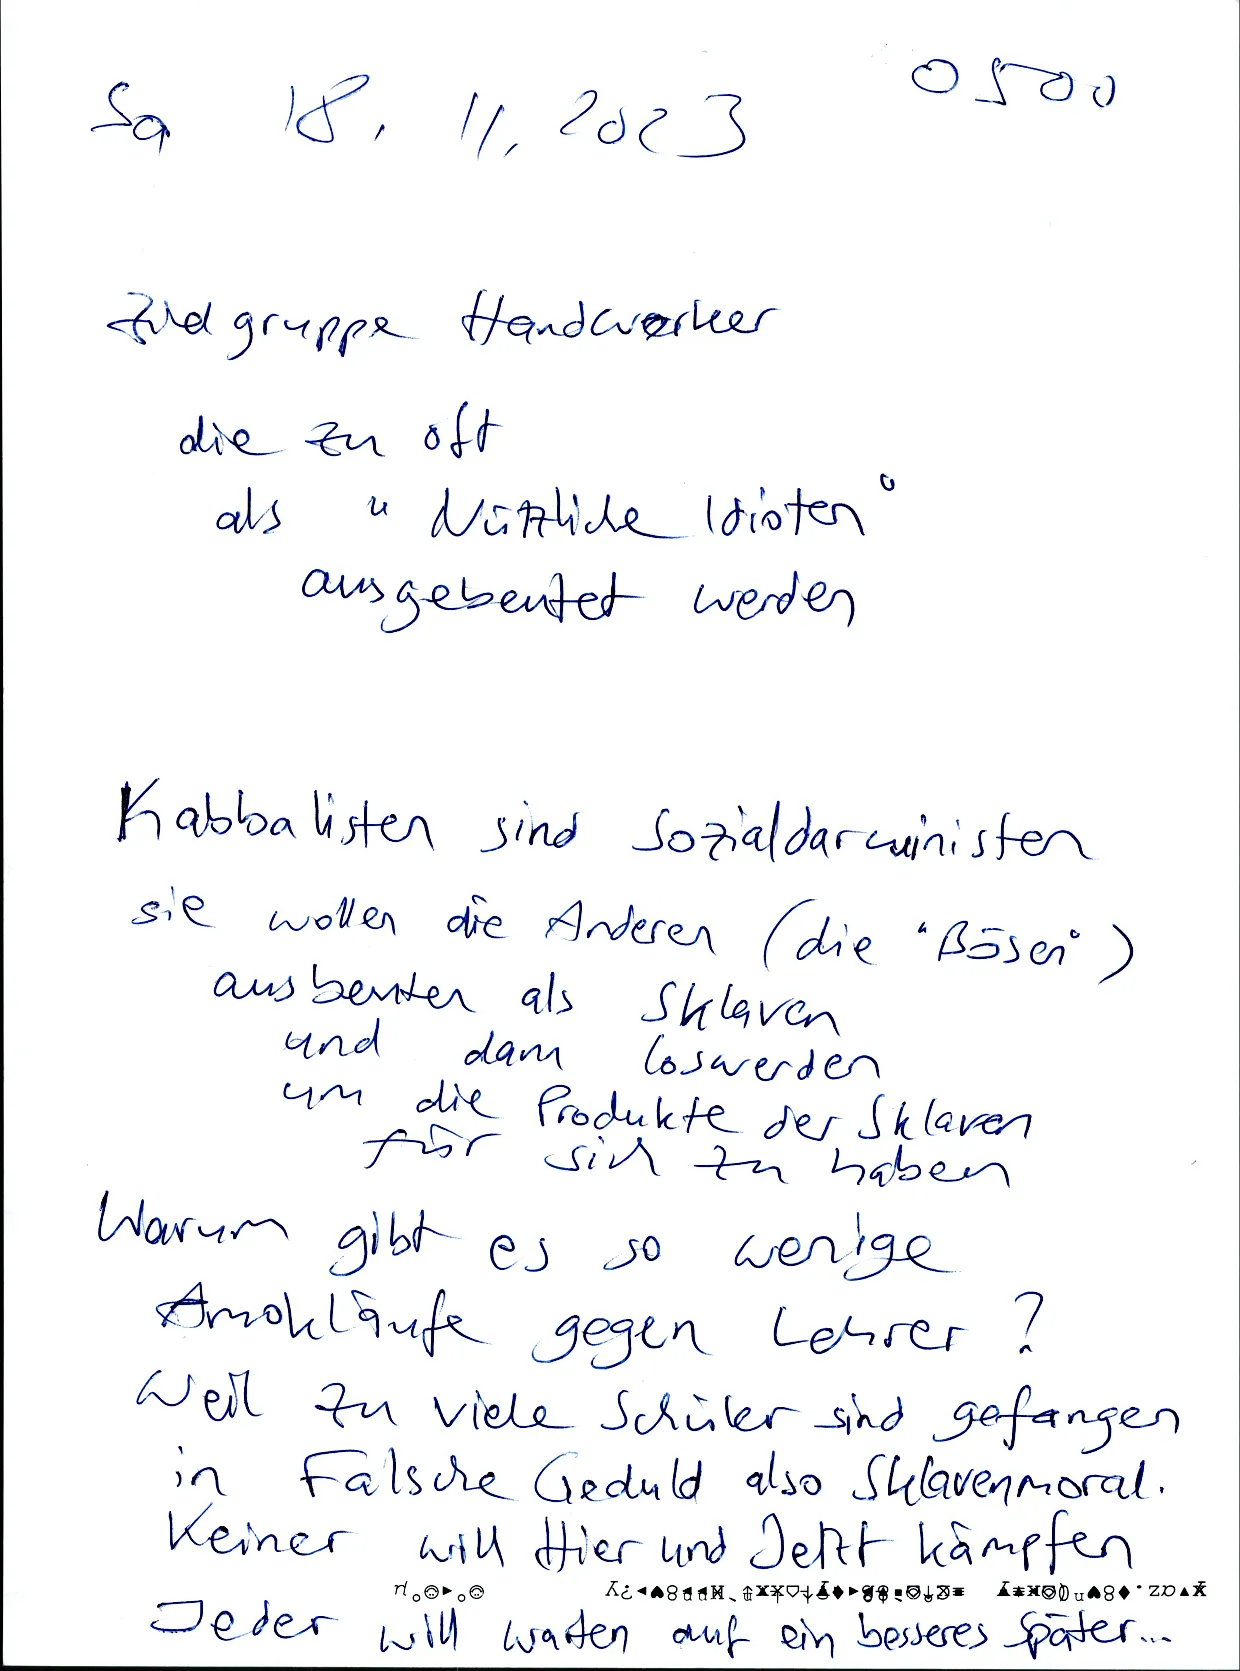 Sa 18. 11. 2023 0500
Zielgruppe Handwerker
die zu oft
als "Nützliche Idioten"
ausgebeutet werden
Kabbalisten sind Sozialdarwinisten
sie wollen die Anderen (die "Bösen")
ausbeuten als Sklaven
und dann loswerden
um die Produkte der Sklaven
für sich zu haben
Warum gibt es so wenige
Amokläufe gegen Lehrer?
Weil zu viele Schüler sind gefangen
in Falsche Geduld also Sklavenmoral.
Keiner will Hier und Jetzt kämpfen
Jeder will warten auf ein besseres Später...